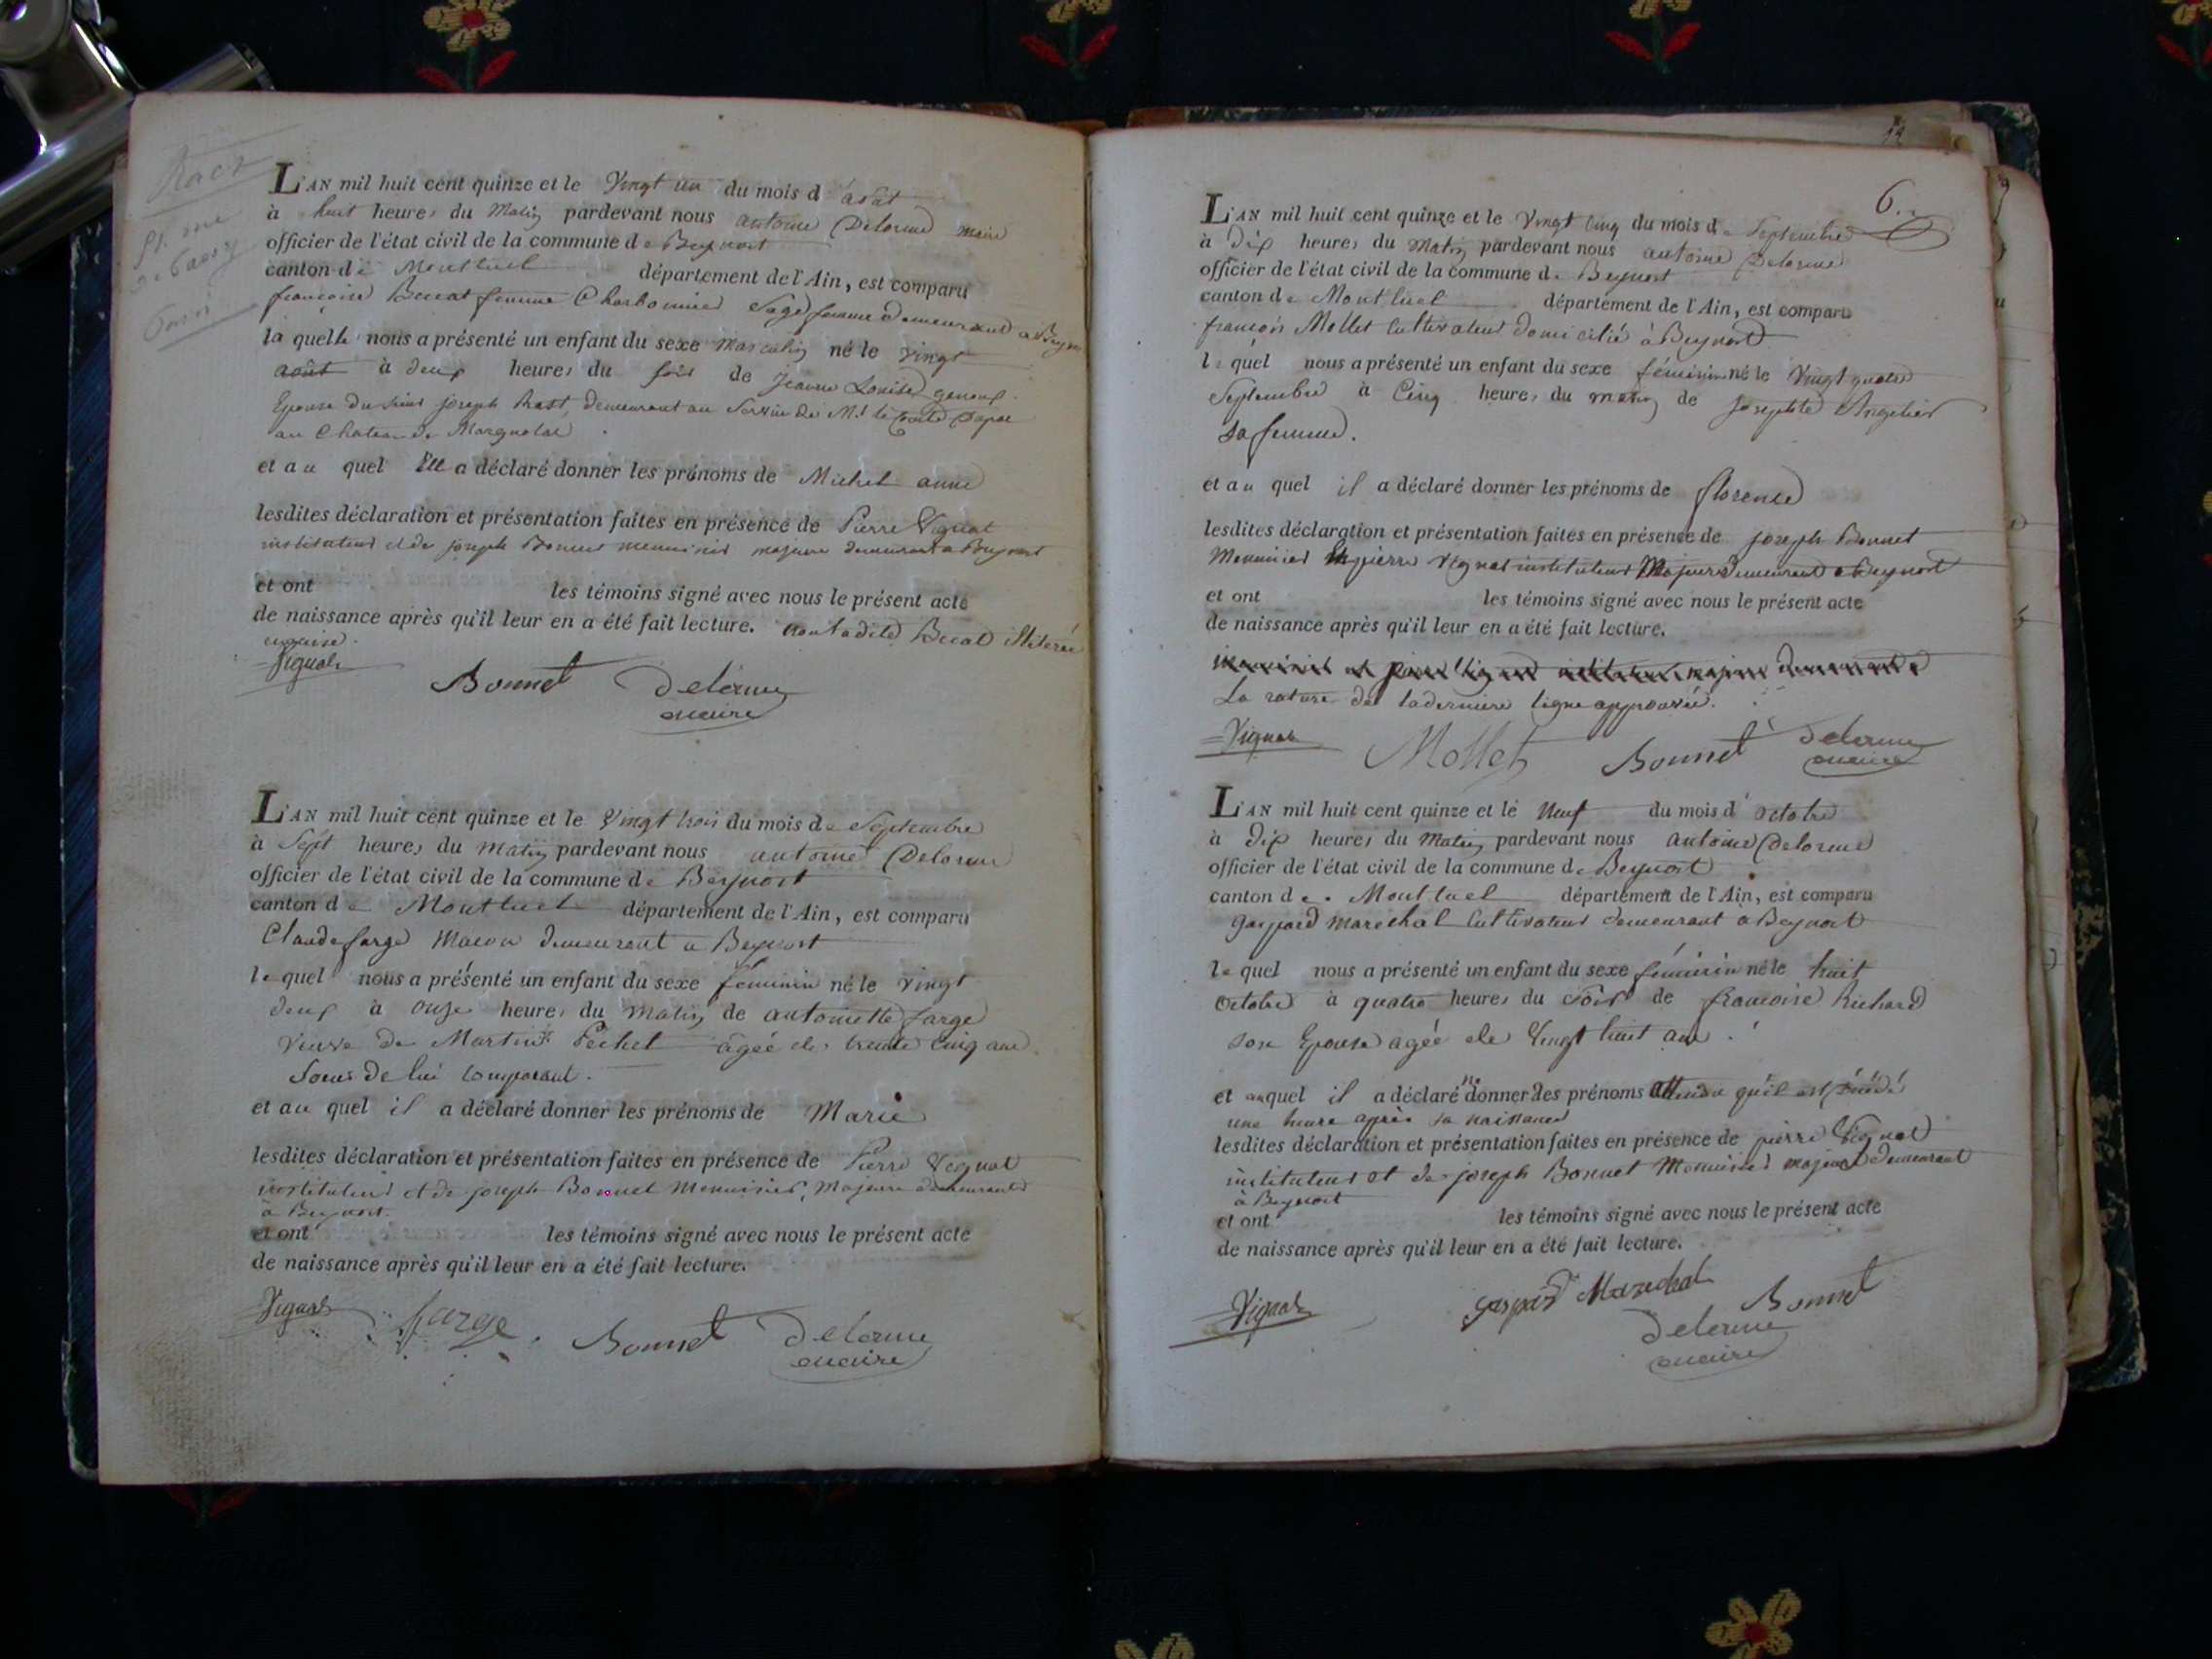 L'AN mil huit cent quinze et le Vingt un du mois d'août
à huit heures du Matin pardevant nous antoine Delorme maire
officier de l'état civil de la commune de Beynost
canton de Montluel département de l'Ain, est comparu
françoise femme Charbonnier Sage femme demeurant a
la quelle nous a présenté un enfant du sexe Masculin né le vingt
août à deux heures du soir de jeanne Louise
Epouse du sieur joseph demeurant au Service de Mr le Comte
au Chateau de
et au quel Elle a déclaré donner les prénoms de Michel anne
lesdites déclaration et présentation faites en présence de Pierre Vignat
instituteur et de joseph Bonnet menuisier majeurs demeurant a Beynost
et ont les témoins signé avec nous le présent acte
de naissance après qu'il leur en a été fait lecture. illiterée
Vignat
Bonnet Delorme
maire
L'AN mil huit cent quinze et le Vingt trois du mois de Septembre
à Sept heures du matin pardevant nous antoine Delorme
officier de l'état civil de la commune de Beynost
canton de Montluel département de l'Ain, est comparu
Claude farge Macon demeurant a Beynost
le quel nous a présenté un enfant du sexe féminin né le vingt
deux à onze heures du matin de antoinette farge
veuve de Martin Pechet âgée de trente cinq ans
Soeur de lui comparant.
et au quel il a déclaré donner les prénoms de Marie
lesdites déclaration et présentation faites en présence de Pierre Vignat
instituteur et de joseph Bonnet Menuisier, Majeurs demeurants
à Beynost.
et ont les témoins signé avec nous le présent acte
de naissance après qu'il leur en a été fait lecture.
Vignat farge Bonnet Delorme
maire
6.
L'AN mil huit cent quinze et le Vingt Cinq du mois de Septembre
à Dix heures du Matin pardevant nous antoine Delorme
officier de l'état civil de la commune de Beynost
canton de Montluel département de l'Ain, est comparu
françois Mollet Cultivateur domicilié à Beynost
le quel nous a présenté un enfant du sexe féminin né le Vingt quatre
Septembre à Cinq heures du matin de josephte Angelier
sa femme.
et au quel il a déclaré donner les prénoms de florence
lesdites déclaration et présentation faites en présence de joseph Bonnet
Menuisier pierre Vignat instituteur Majeurs demeurant a Beynost
et ont les témoins signé avec nous le présent acte
de naissance après qu'il leur en a été fait lecture.
menuisier et pierre Vignat instituteur majeurs demeurant a
La rature de la derniere ligne approuvée.
Vignat Mollet Bonnet Delorme
maire
L'AN mil huit cent quinze et le Neuf du mois d'octobre
à Dix heures du Matin pardevant nous antoine Delorme
officier de l'état civil de la commune de Beynost
canton de Montluel département de l'Ain, est comparu
gaspard maréchal Cultivateur demeurant a Beynost
le quel nous a présenté un enfant du sexe féminin né le huit
octobre à quatre heures du soir de francoise Richard
son Epouse agée de Vingt huit ans.
et auquel il a déclaré ne donner des prénoms attendu qu'il est décédé
une heure après sa naissance
lesdites déclaration et présentation faites en présence de pierre Vignat
instituteur et de joseph Bonnet Menuisier majeurs demeurant
à Beynost
et ont les témoins signé avec nous le présent acte
de naissance après qu'il leur en a été fait lecture.
Vignat gaspard Marechal Bonnet
Delorme
maire